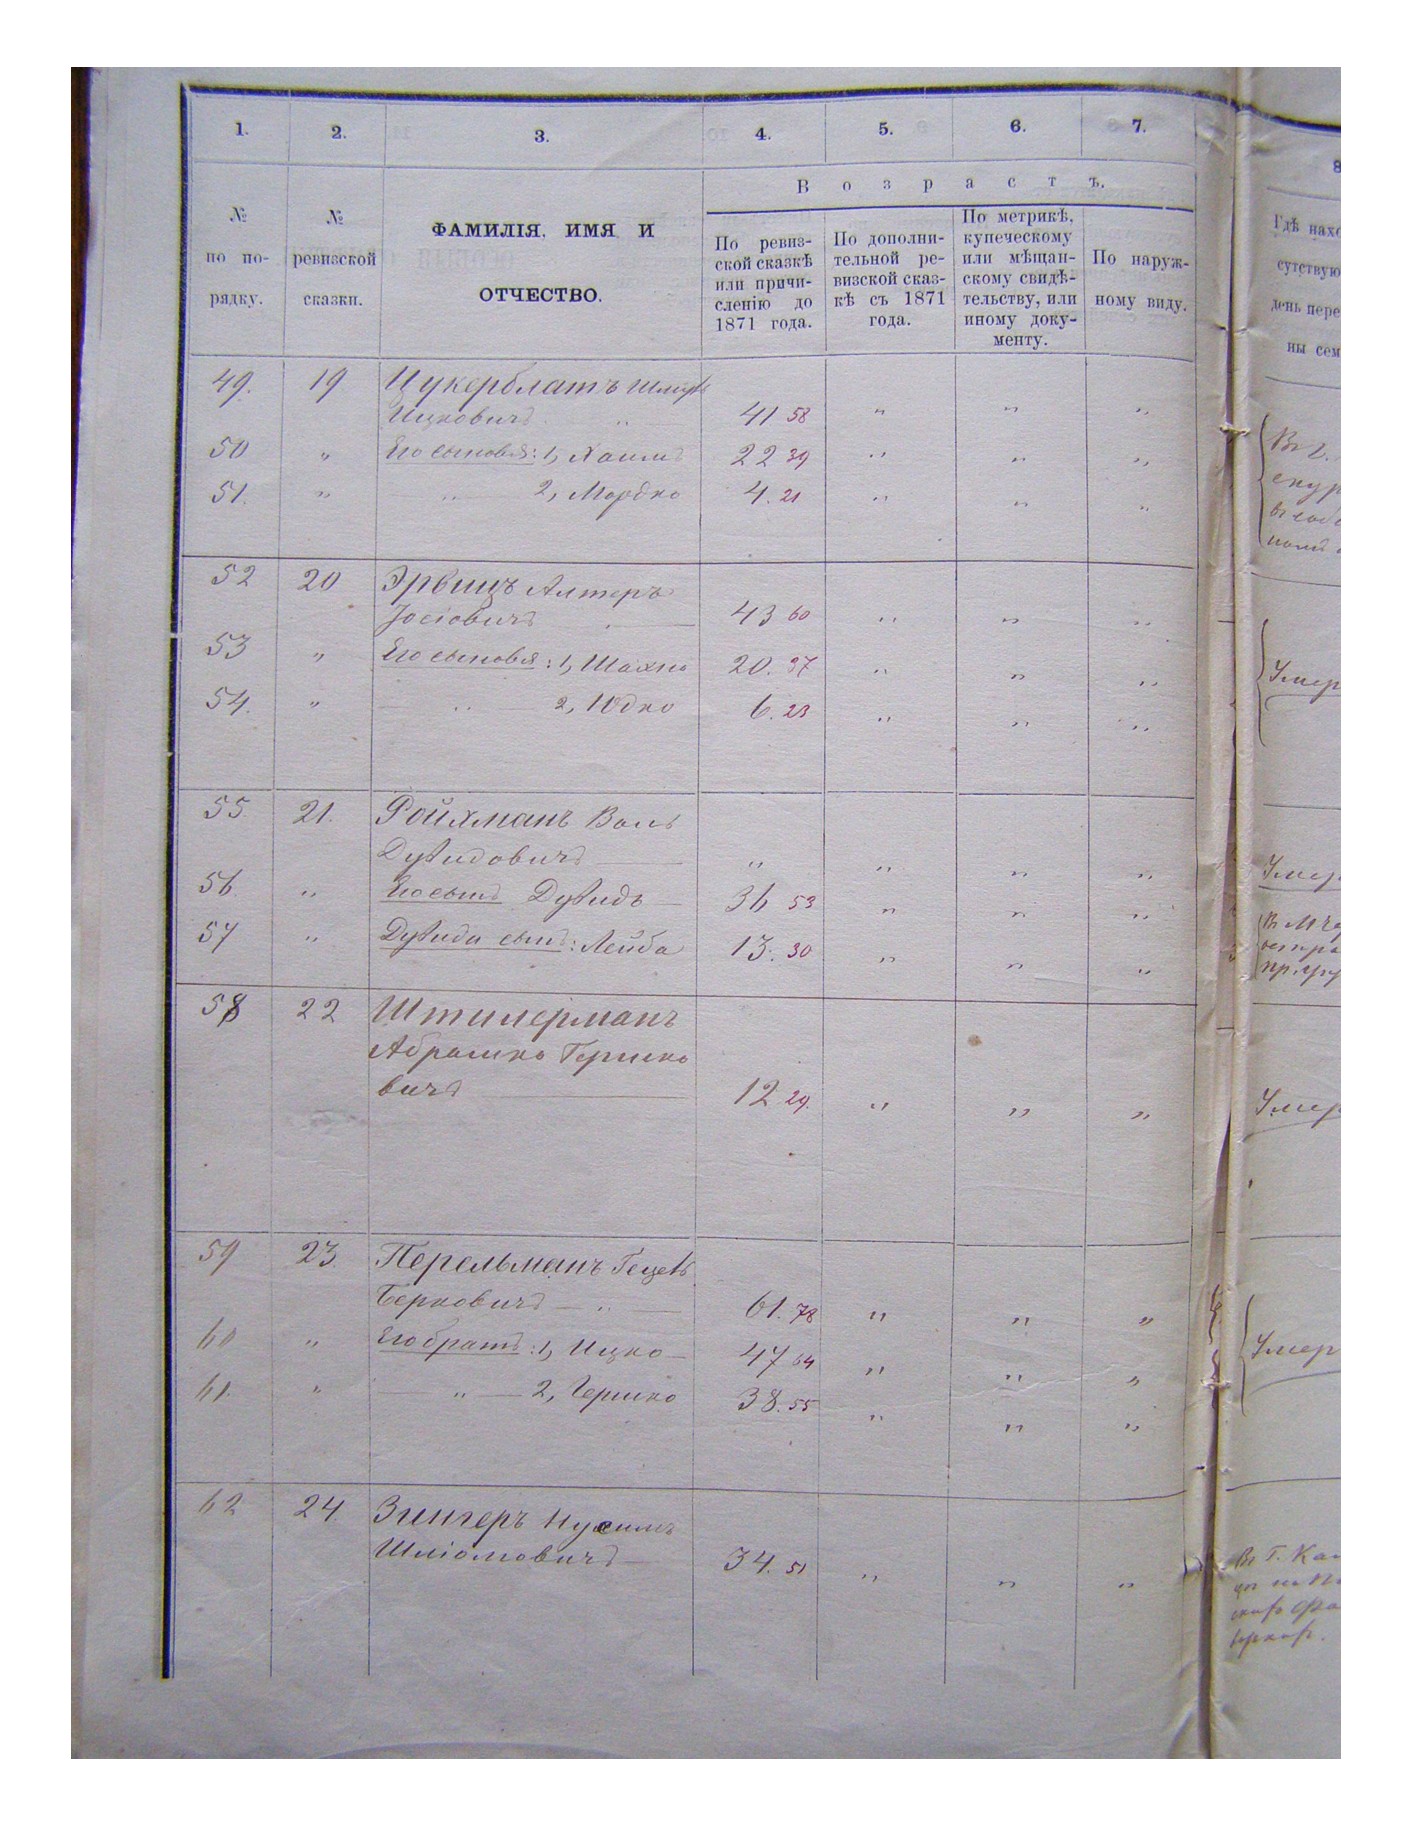 1. 2. 3. 4. 5. 6. 7.
8
Возрастъ.
№
по по-
рядку.
№
ревизской
сказки.
ФАМИЛІЯ, ИМЯ И
ОТЧЕСТВО.
По ревиз-
ской сказкѣ
или причи-
сленію до
1871 года.
По дополни-
тельной ре-
визской сказ-
кѣ съ 1871
года.
По метрикѣ,
купеческому
или мѣщан-
скому свидѣ-
тельству, или
иному доку-
менту.
По наруж-
ному виду.
Гдѣ нахо
сутствую
день пере
ны сем
49. 19 Цукерблатъ
Ицковичъ " 41 58 " " "
50 " Его сыновья: 1, Хаимъ 22 39 " " "
51. " " 2, Мордко 4. 21 " " "
Въ г.
52 20 Эрвицъ Алтеръ
Іосіовичъ 43 60 " " "
53 " Его сыновья: 1, Шахно 20. 37 " " "
54. " " 2, Юдко 6. 23 " " "
Умер
55 21. Ройхманъ Воль
Дувидовичъ " " " "
56. " Его сынъ Дувидъ 36 53 " " "
57 " Дувида сынъ: Лейба 13. 30 " " "
Умер
58 22 Штилерманъ
Абрамко Гершко
вичъ 12 29. " " "
Умер
59 23. Перельманъ Гецель
Берковичъ " 61. 78 " " "
60 " Его братъ: 1, Ицко 47 64 " " "
61. " " 2, Гершко 38. 55 " " "
Умер
62 24. Зингеръ Нусимъ
Шліомовичъ 34. 51 " " "
Въ Г. Кам